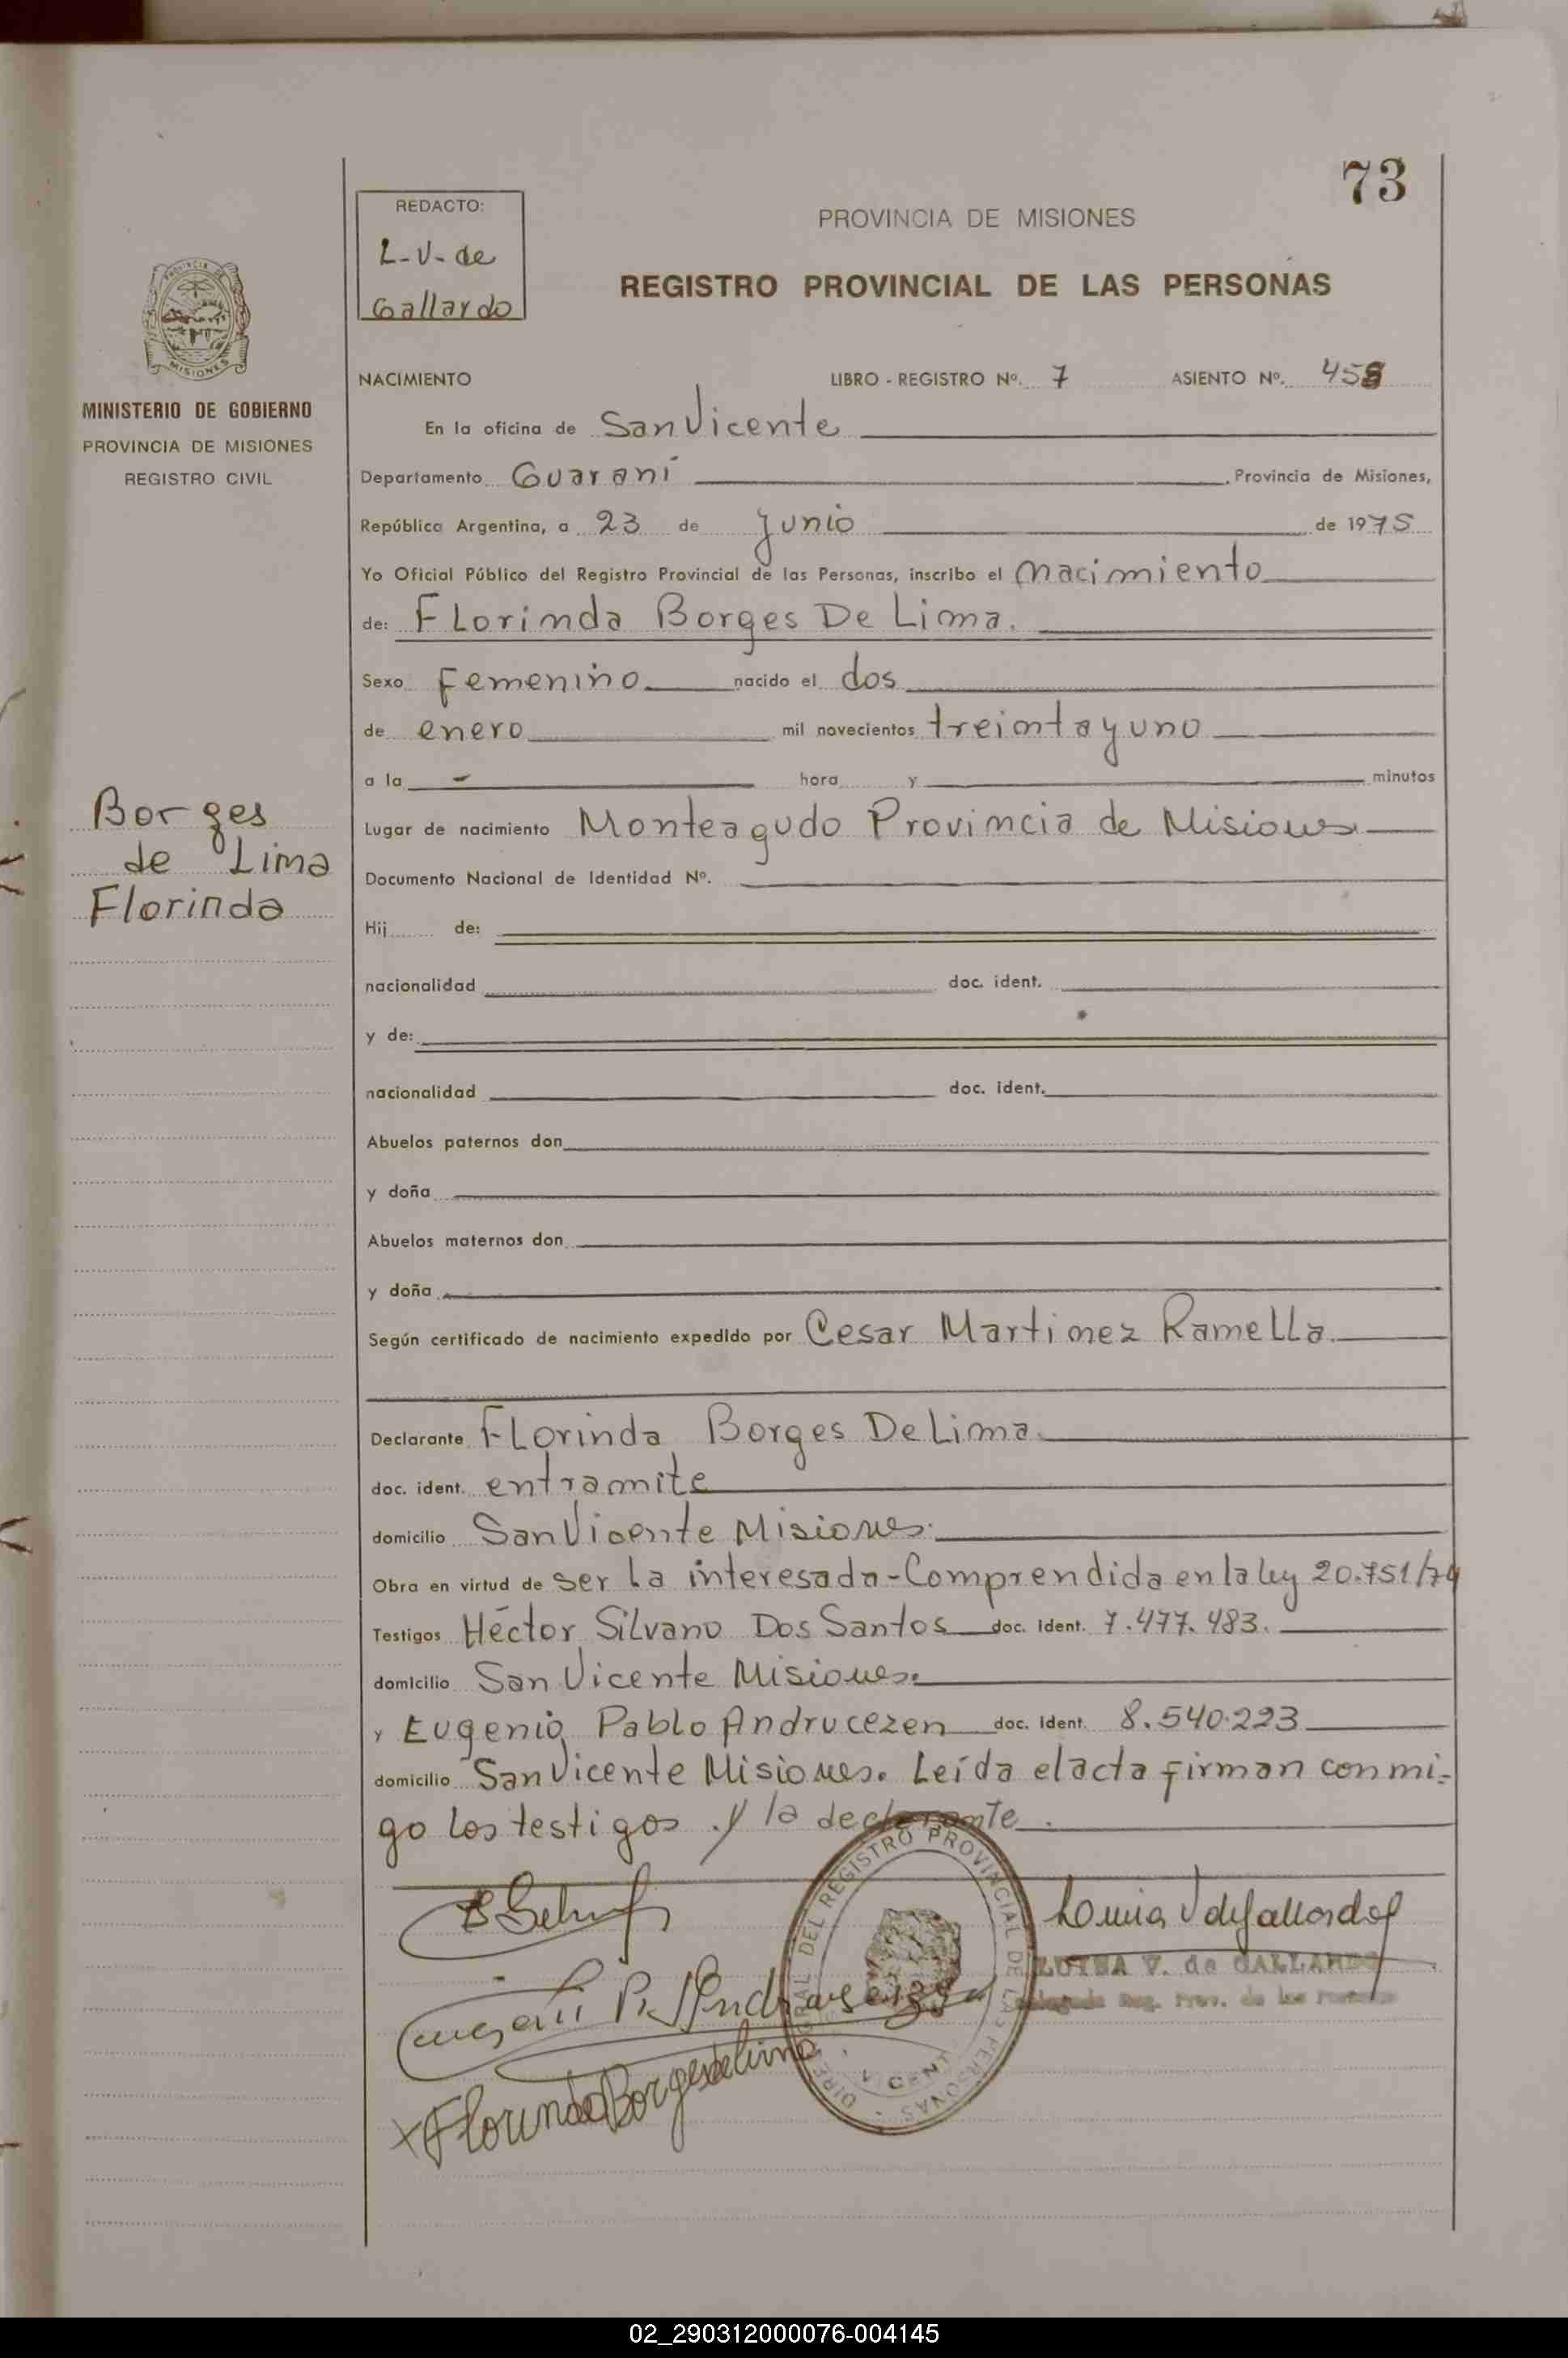 73
REDACTO:
L-V-de
Gallardo
PROVINCIA DE MISIONES
REGISTRO PROVINCIAL DE LAS PERSONAS
PROVINCIA DE
MISIONES
MINISTERIO DE GOBIERNO
PROVINCIA DE MISIONES
REGISTRO CIVIL
Borges
de Lima
Florinda
NACIMIENTO LIBRO - REGISTRO Nº. 7 ASIENTO Nº. 458
En la oficina de San Vicente
Departamento Guaraní , Provincia de Misiones,
República Argentina, a 23 de junio de 1975
Yo Oficial Público del Registro Provincial de las Personas, inscribo el nacimiento
de: Florinda Borges De Lima.
Sexo Femenino nacido el dos
de enero mil novecientos treinta y uno
a la - hora y minutos
Lugar de nacimiento Monteagudo Provincia de Misiones
Documento Nacional de Identidad Nº.
Hij de:
nacionalidad doc. ident.
y de:
nacionalidad doc. ident.
Abuelos paternos don
y doña
Abuelos maternos don
y doña
Según certificado de nacimiento expedido por Cesar Martinez Ramella
Declarante Florinda Borges De Lima
doc. ident. en tramite
domicilio San Vicente Misiones.
Obra en virtud de ser la interesada-Comprendida en la ley 20.751/74
Testigos Héctor Silvano Dos Santos doc. ident. 7.477.483.
domicilio San Vicente Misiones.
y Eugenio Pablo Andrucezen doc. ident. 8.540.223
domicilio San Vicente Misiones. Leída el acta firman conmi-
go los testigos y la declarante.
DIRE GRAL DEL REGISTRO PROVINCIAL DE LAS PERSONAS
Luisa V de Gallardo
LUISA V. de GALLARDO
Delegada Reg. Prov. de las Personas
X Florinda Borges de Lima
02_290312000076-004145